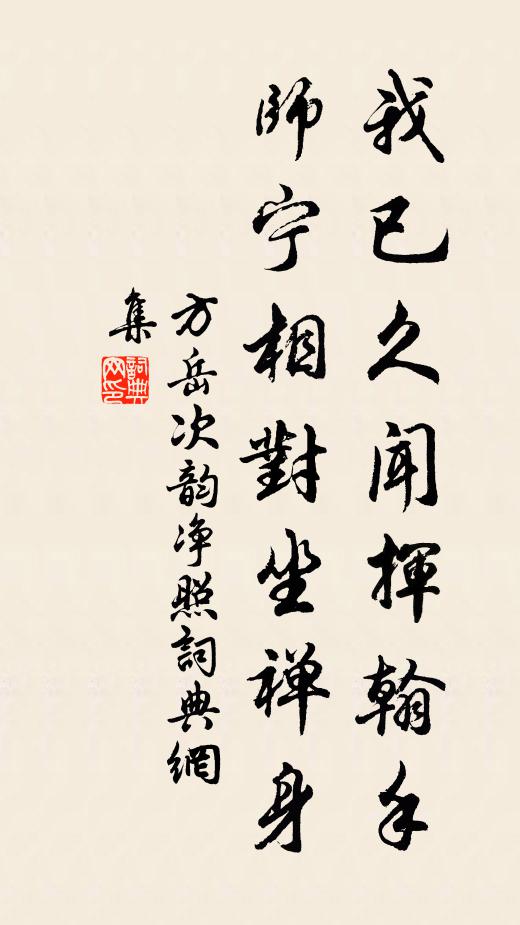 我已久闻揮翰手
師宁相對坐禅身
方岳次韵净照詞典網
集
詞典
网印